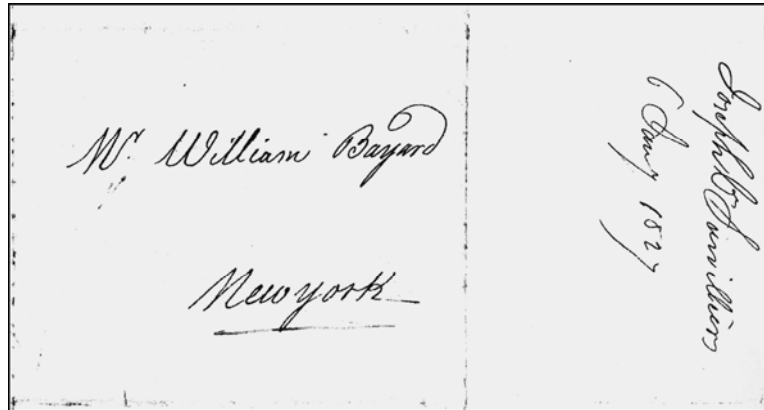 Mr. William Bayard
New york
Joseph Survilliers
6 Jany 1827